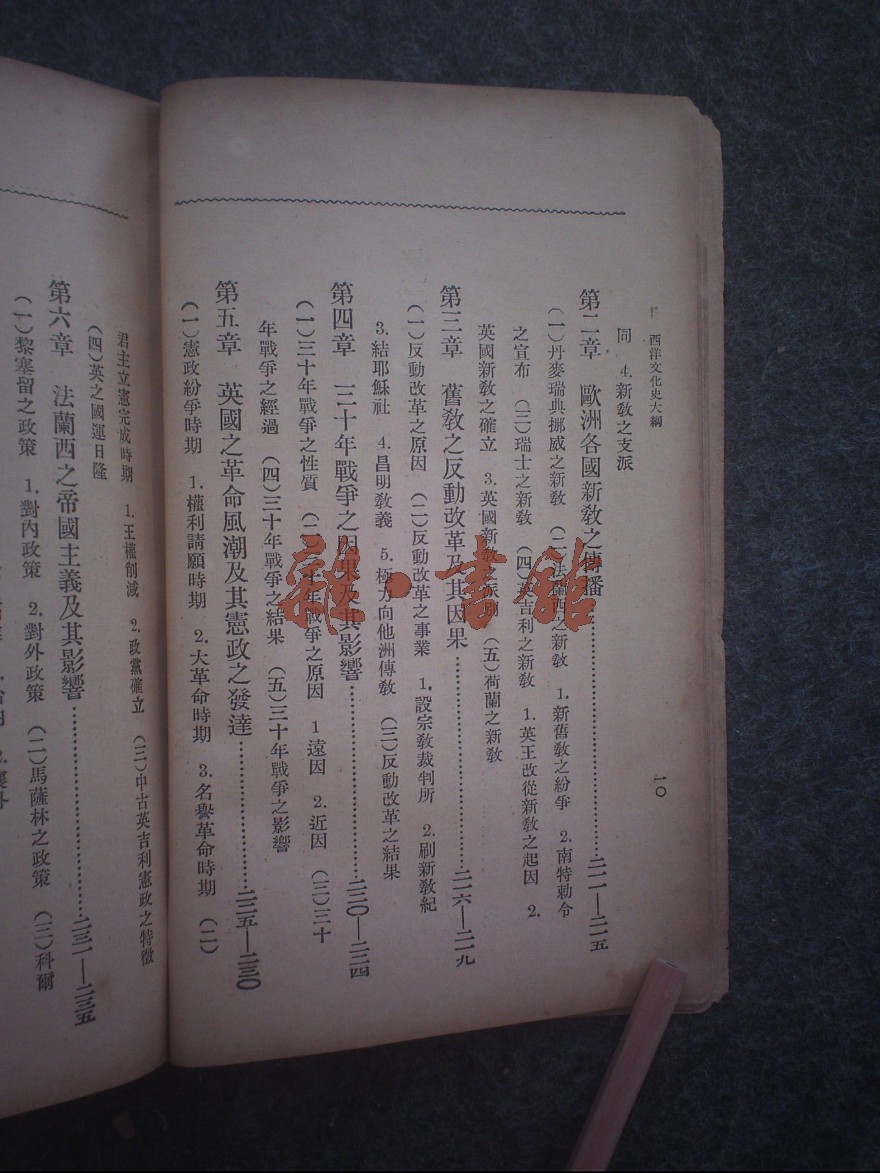 西洋文化史大綱
一〇
同 4.新教之支派
第二章 歐洲各國新教之傳播……二一一—二一五
(一)丹麥瑞典挪威之新教 (二)法蘭西之新教 1.新舊教之紛爭 2.南特勅令
之宣布 (三)瑞士之新教 (四)英吉利之新教 1.英王改從新教之起因 2.
英國新教之確立 3.英國新教之派別 (五)荷蘭之新教
第三章 舊教之反動改革及其因果……二一六—二一九
(一)反動改革之原因 (二)反動改革之事業 1.設宗教裁判所 2.刷新教紀
3.結耶穌社 4.昌明教義 5.極力向他洲傳教 (三)反動改革之結果
第四章 三十年戰爭之因果及其影響……二二〇—二二四
(一)三十年戰爭之性質 (二)三十年戰爭之原因 1遠因 2.近因 (三)三十
年戰爭之經過 (四)三十年戰爭之結果 (五)三十年戰爭之影響
第五章 英國之革命風潮及其憲政之發達……二二五—二三〇
(一)憲政紛爭時期 1.權利請願時期 2.大革命時期 3.名譽革命時期 (二)
君主立憲完成時期 1.王權削減 2.政黨確立 (三)中古英吉利憲政之特徵
(四)英之國運日隆
第六章 法蘭西之帝國主義及其影響……二三一—二三五
(一)黎塞留之政策 1.對內政策 2.對外政策 (二)馬薩林之政策 (三)科爾
雜·書館